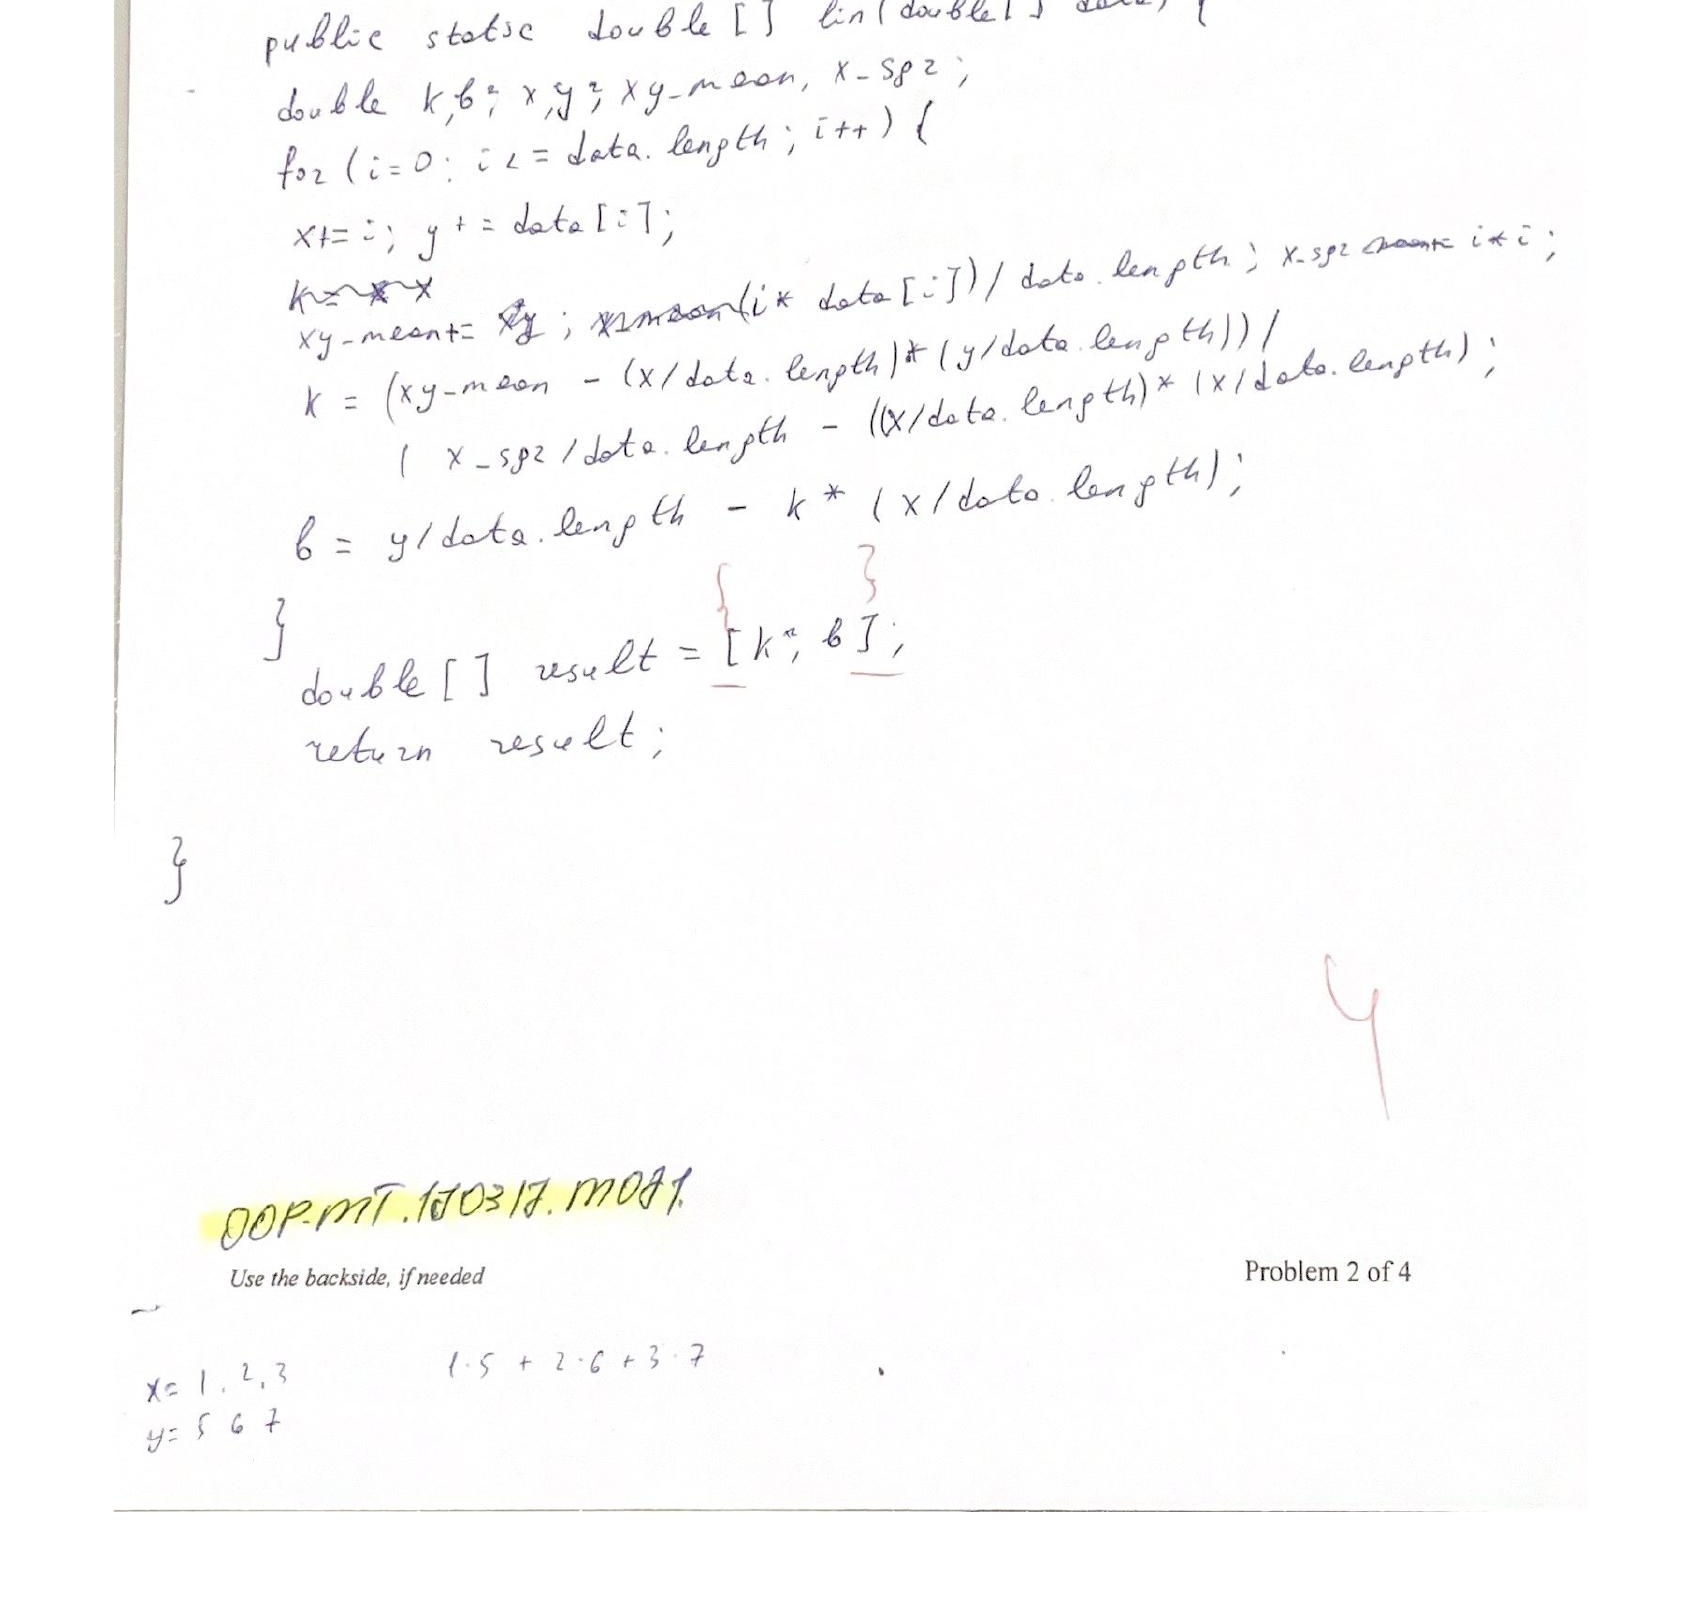 public static double [] lin(double[] data) {
double k, b, x, y, xy-mean, x-sqr;
for (i=0; i<=data.length; i++) {
x+= i; y += data[i];
xy-mean+= (i* data[i])/data.length; x-sqr i*i;
k = (xy-mean - (x/data.length)*(y/data.length))/
( x-sqr/data.length - ((x/data.length)* (x/data.length);
b = y/data.length - k* (x/data.length);
{ }
}
double [] result = [k, b];
return result;
}
4
OOP.MT.170317.M071.
Use the backside, if needed
Problem 2 of 4
x= 1, 2, 3
1·5 + 2·6 + 3·7
y= 5 6 7